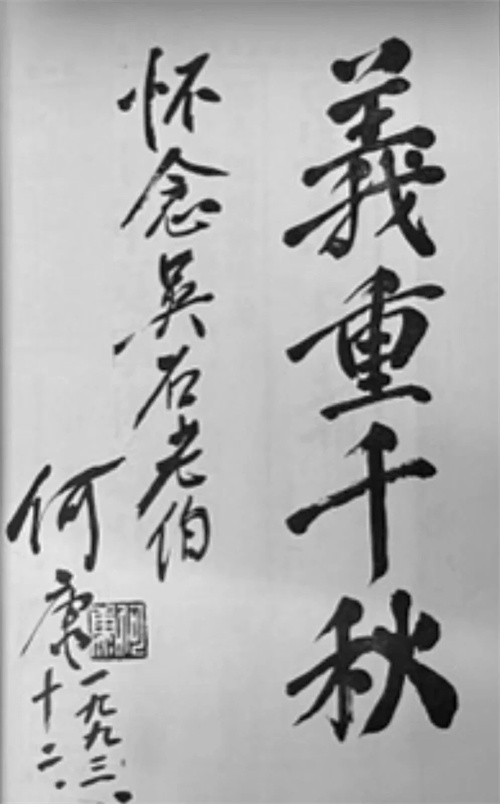 義重千秋
怀念吴石老伯
何康
一九九三、
十二、